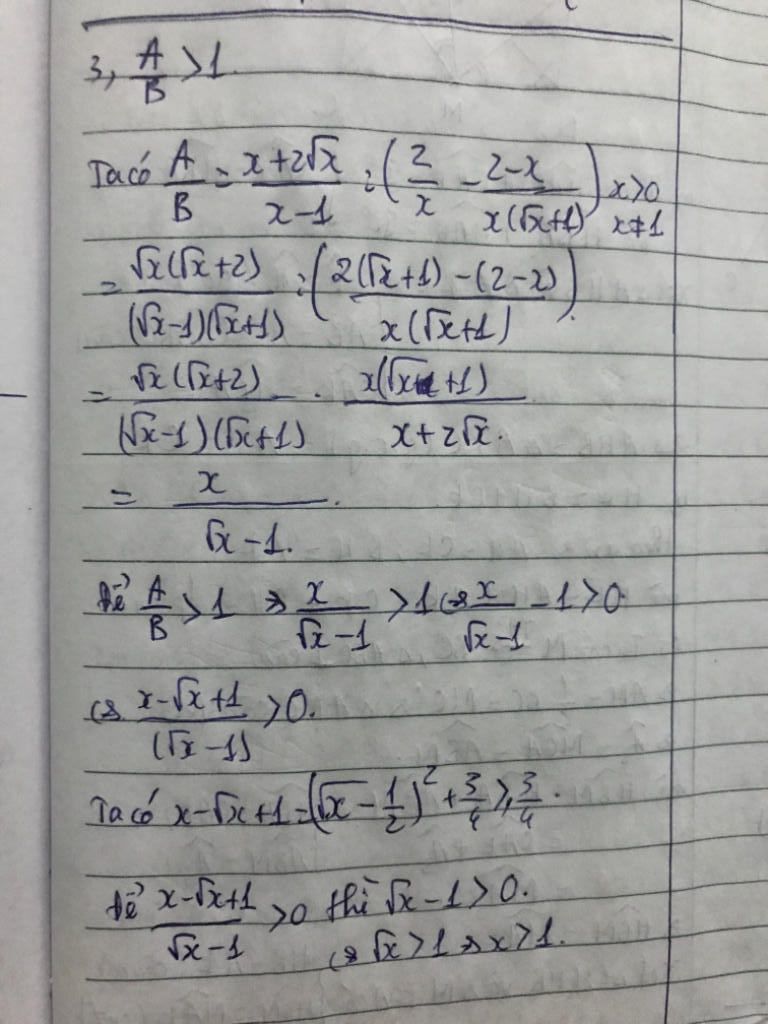 3, A/B > 1.
Ta có A/B = (x+2√x)/(x-1) : (2/x - (2-x)/(x(√x+1))) x>0 x≠1
= √x(√x+2)/((√x-1)(√x+1)) : ((2(√x+1)-(2-x))/(x(√x+1))).
= √x(√x+2)/((√x-1)(√x+1)) . x(√x+1)/(x+2√x).
= x/(√x-1).
Để A/B > 1 => x/(√x-1) > 1 <=> x/(√x-1) - 1 > 0
<=> (x-√x+1)/(√x-1) > 0.
Ta có x-√x+1 = (√x - 1/2)² + 3/4 ≥ 3/4.
Để (x-√x+1)/(√x-1) > 0 thì √x-1 > 0.
<=> √x > 1 => x > 1.